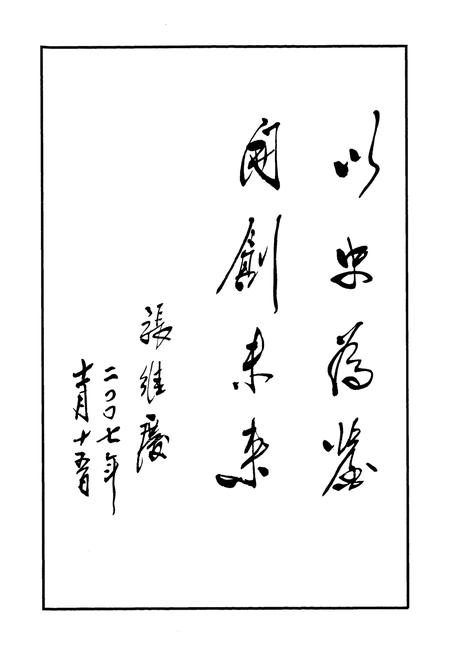 以史为鉴
开创未来
張維慶
二〇〇七年
十二月十五日